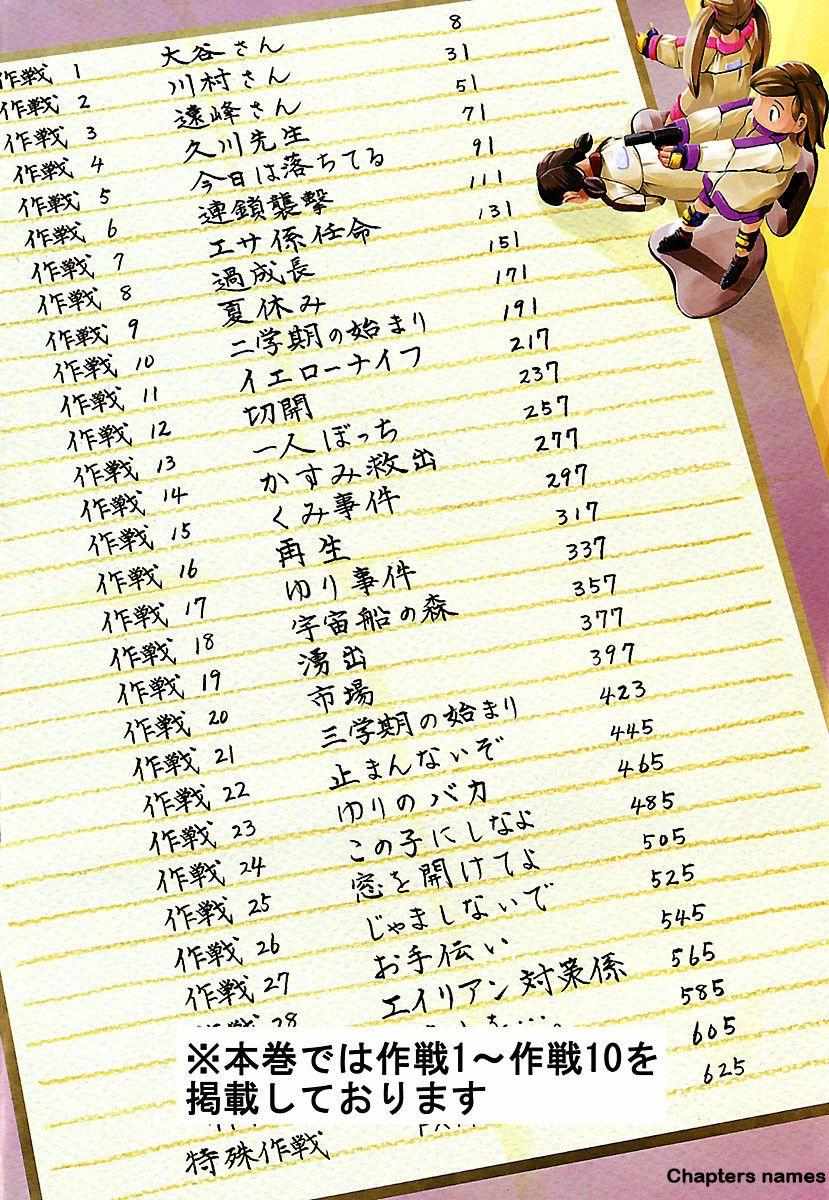 作戦 1 大谷さん 8
作戦 2 川村さん 31
作戦 3 遠峰さん 51
作戦 4 久川先生 71
作戦 5 今日は落ちてる 91
作戦 6 連鎖襲撃 111
作戦 7 エサ係任命 131
作戦 8 過成長 151
作戦 9 夏休み 171
作戦 10 二学期の始まり 191
作戦 11 イエローナイフ 217
作戦 12 切開 237
作戦 13 一人ぼっち 257
作戦 14 かすみ救出 277
作戦 15 くみ事件 297
作戦 16 再生 317
作戦 17 ゆり事件 337
作戦 18 宇宙船の森 357
作戦 19 湧出 377
作戦 20 市場 397
作戦 21 三学期の始まり 423
作戦 22 止まんないぞ 445
作戦 23 ゆりのバカ 465
作戦 24 この子にしなよ 485
作戦 25 窓を開けてよ 505
作戦 26 じゃましないで 525
作戦 27 お手伝い 545
作戦 28 エイリアン対策係 565
585
605
特殊作戦 625
※本巻では作戦1～作戦10を
掲載しております
Chapters names